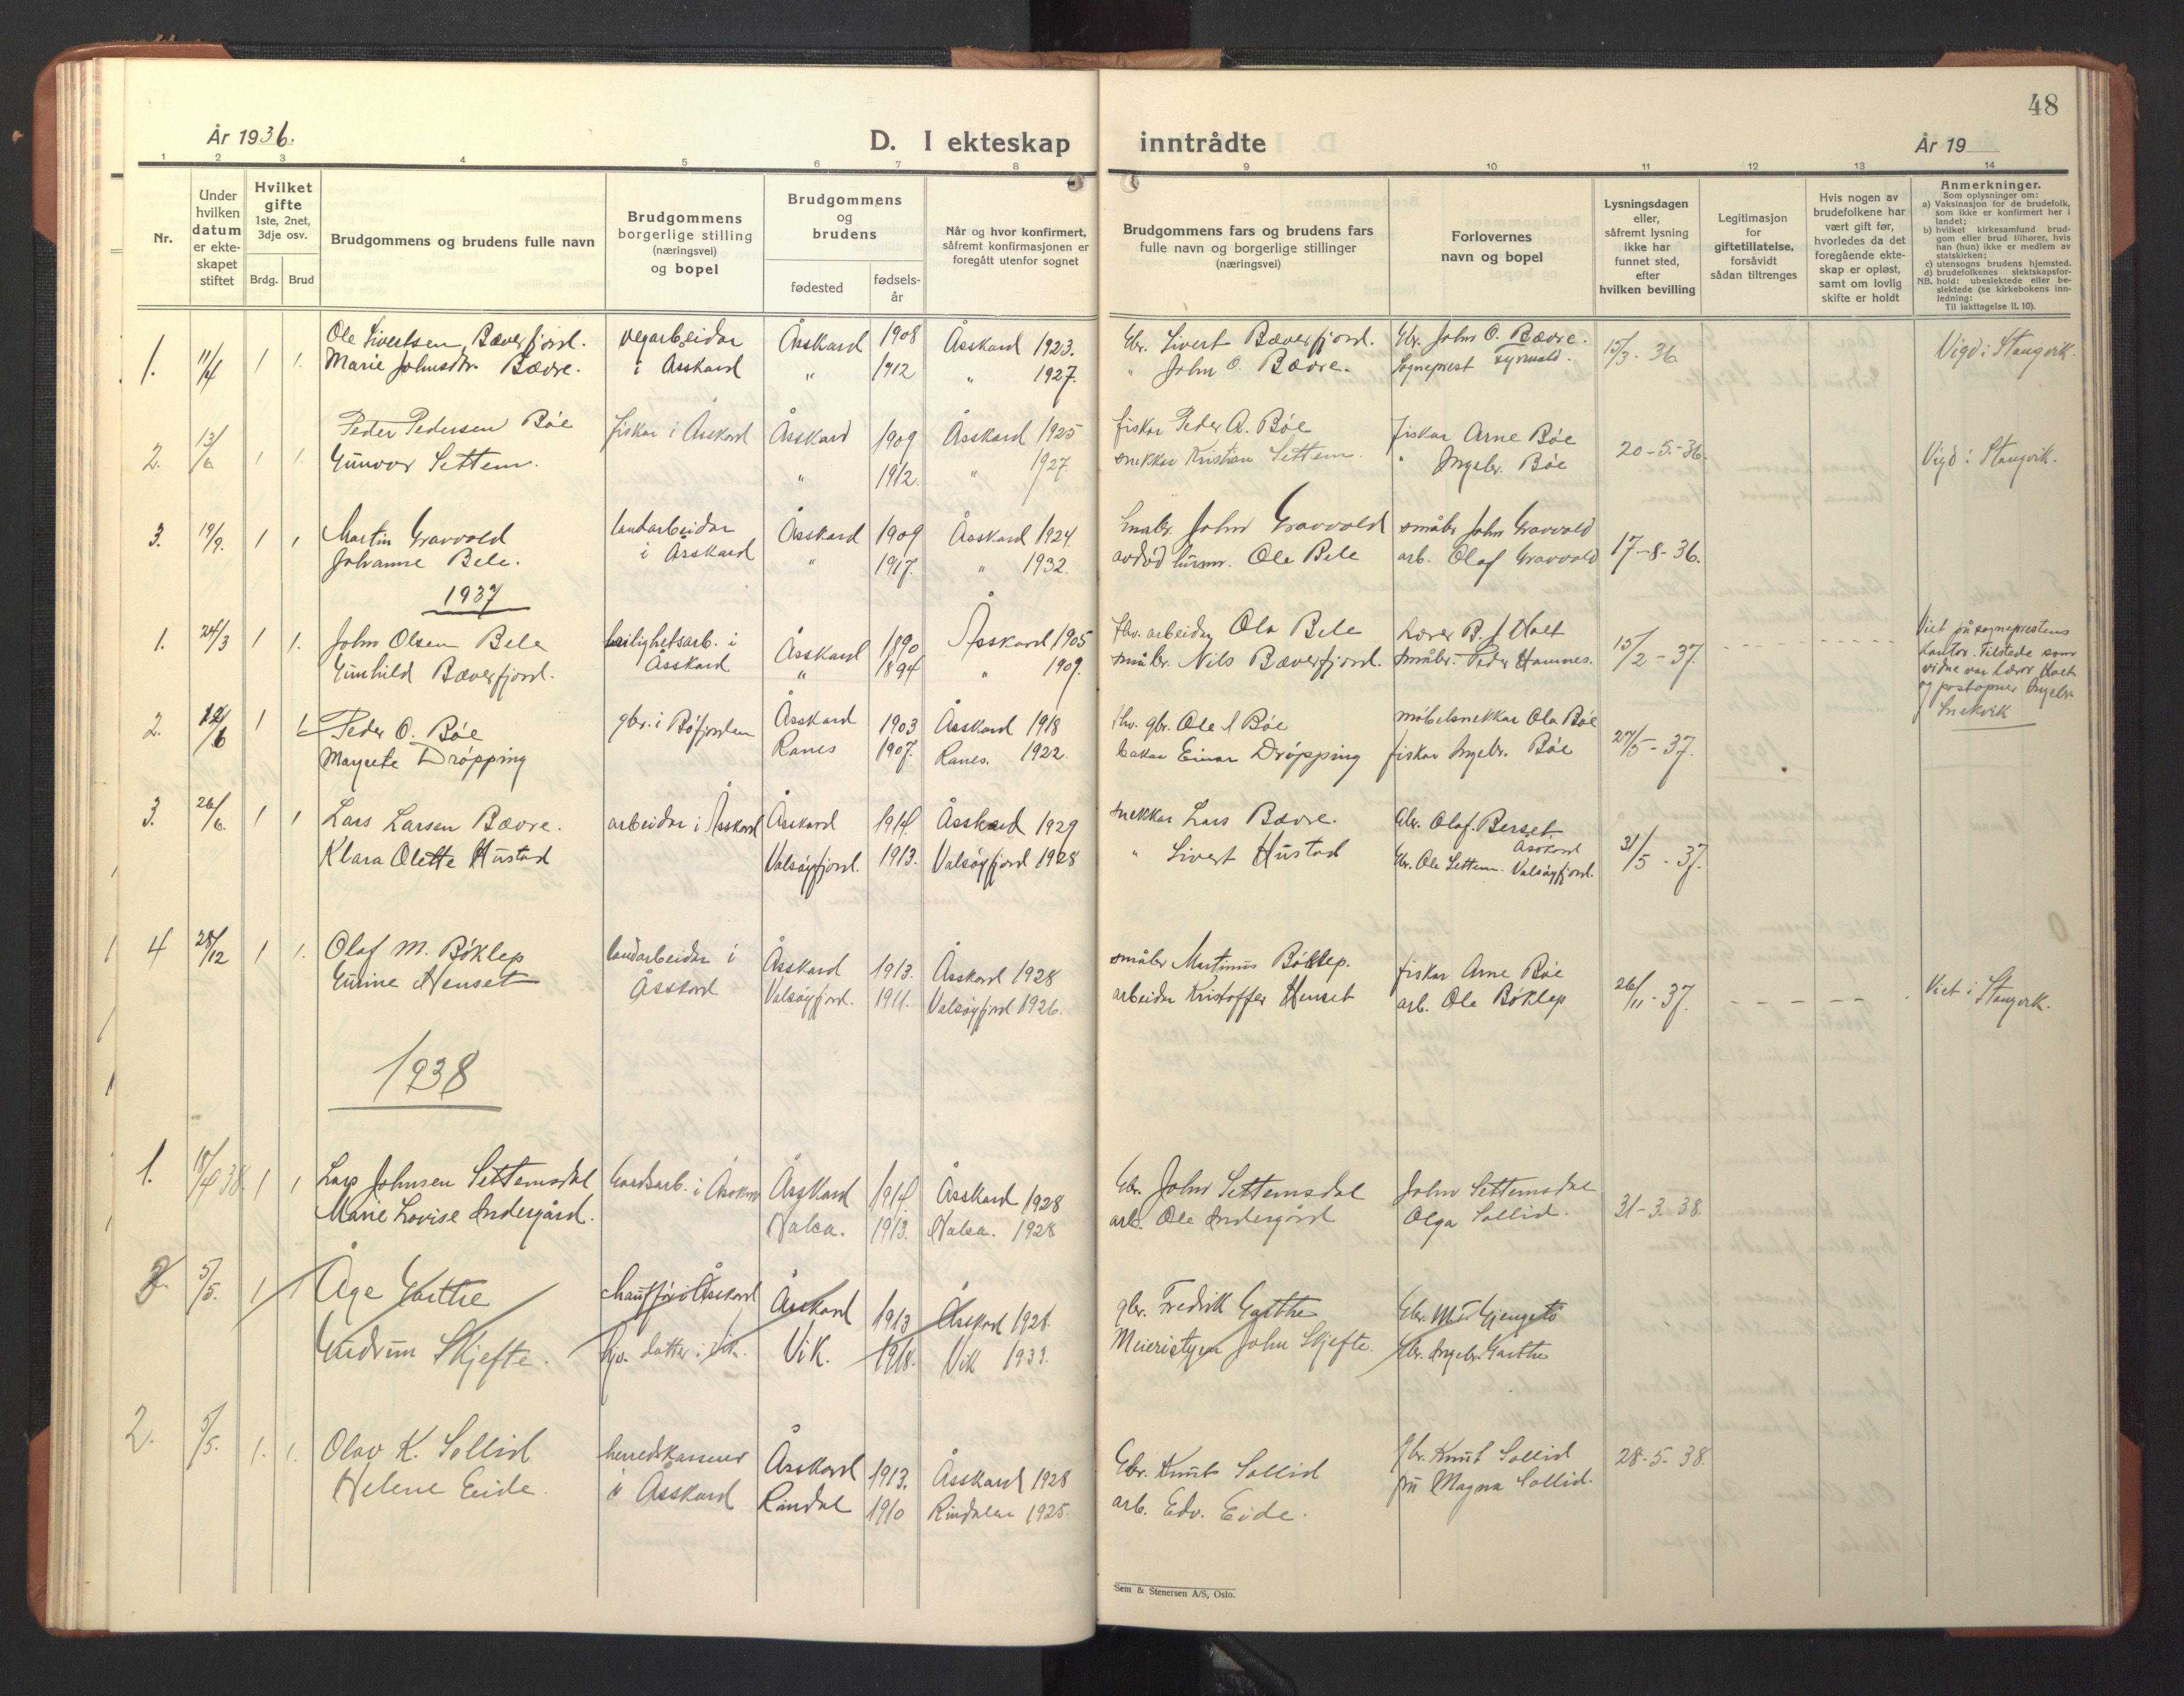 48
År 1936.
D. I ekteskap inntrådte
År 19
1 2 3 4 5 6 7 8 9 10 11 12 13 14
Nr.
Under hvilken datum er ekte-skapet stiftet
Hvilket gifte 1ste, 2net, 3dje osv.
Brdg. Brud
Brudgommens og brudens fulle navn
Brudgommens borgerlige stilling (næringsvei) og bopel
Brudgommens og brudens
fødested
fødsels-år
Når og hvor konfirmert, såfremt konfirmasjonen er foregått utenfor sognet
Brudgommens fars og brudens fars fulle navn og borgerlige stillinger (næringsvei)
Forlovernes navn og bopel
Lysningsdagen eller, såfremt lysning ikke har funnet sted, efter hvilken bevilling
Legitimasjon for giftetillatelse, forsåvidt sådan tiltrenges
Hvis nogen av brudefolkene har vært gift før, hvorledes da det foregående ekte-skap er opløst, samt om lovlig skifte er holdt
Anmerkninger.
Som oplysninger om:
a) Vaksinasjon for de brudefolk, som ikke er konfirmert her i landet;
b) hvilket kirkesamfund brud-gom eller brud tilhører, hvis han (hun) ikke er medlem av statskirken;
c) utensogns brudens hjemsted.
d) brudefolkenes slektskapsfor-hold: ubeslektede eller be-slektede (se kirkebokens inn-ledning:
NB. Til iakttagelse II. 10).
1. 11/4 1 1. Ole Sivertsen Bæverfjord. vegarbeidar Åsskard 1908 Åsskard 1923. Gbr. Sivert Bæverfjord. Gbr. John O. Bævre. 15/3-36 Vigd i Stangvik.
Marie Johnsdtr. Bævre. i Åsskard " 1912 " 1927. " John O. Bævre. Sogneprest
2. 13/6 1 1. Peder Pedersen Bøe fiskar i Åsskard Åsskard 1909 Åsskard 1925 fiskar Peder A. Bøe fiskar Arne Bøe 20-5-36 Vigd i Stangvik.
Gunvor Settem. " 1912. " 1927. snekkar Kristian Settem. " Ingebr. Bøe
3. 19/9. 1 1 Martin Gravvold landarbeidar Åsskard 1909 Åsskard 1924. Småbr. John Gravvold småbr John Gravvold 17-8-36.
Johanne Bele. i Åsskard " 1917. " 1932. avdød husm. Ole Bele arb. Olaf Gravvold
1937
1. 24/3 1 1. John Olsen Bele leilighetsarb. i Åsskard 1890 Åsskard 1905 fhv. arbeider Ola Bele Lærer B. J Holt 15/2-37.
Gunhild Bæverfjord. Åsskard " 1894 " 1909. småbr. Nils Bæverfjord. småbr. Peder Hamnes.
Viet på sogneprestens
kontor. Tilstede som
vidne var lærer Holt
og postopner Ingebr.
Snekvik
2. 12/6 1 1 Peder O. Bøe gbr. i Bøfjorden Åsskard 1903 Åsskard 1918 fhv. gbr. Ole I Bøe møbelsnekkar Ola Bøe 27/5-37.
Margrete Drøpping Ranes 1907. Ranes. 1922. bakar Einar Drøpping fiskar Ingebr. Bøe
3. 26/6. 1 1 Lars Larsen Bævre. arbeidar i Åsskard Åsskard 1914. Åsskard 1929 snekkar Lars Bævre. Gbr. Olaf. Berset. Åsskard 31/5-37.
Klara Olette Hustad Valsøyfjord. 1913. Valsøyfjord 1928 " Sivert Hustad Gbr. Ole Settem. Valsøyfjord.
4 28/12 1 1. Olaf M. Bøklep landarbeidar i Åsskard 1913. Åsskard 1928 småbr Martinus Bøklep. fiskar Arne Bøe 26/11-37. Viet i Stangvik.
Gurine Henset Åsskard Valsøyfjord. 1911. Valsøyfjord 1926. arbeidar Kristoffer Henset arb. Ole Bøklep
1938
1. 18/4 38. 1 1 Lars Johnsen Settemsdal Gardsarb. i Åsskard Åsskard 1914. Åsskard 1928 Gbr. John Settemsdal John Settemsdal 31-3.38.
Marie Lovise Indergård. Halsa. 1913. Halsa. 1928 arb. Ole Indergård Olga Sollid.
2. 5/5. 1 1 Åge Garthe chauffør i Åsskard Åsskard 1913 Åsskard 1928. gbr. Fredrik Garthe Gbr. M.
Gudrun Skjefte. datter i Vik. Vik. 1918. Vik 1933. Meieristyrer John Skjefte. Gbr. Ingebr. Garthe
2. 5/5. 1. 1. Olav K. Sollid herredskasserer Åsskard 1913. Åsskard 1928 Gbr. Knut Sollid gbr. Knut Sollid 28-5-38.
Helene Eide. i Åsskard Rindal 1910 Rindalen 1925. arb. Edv. Eide. fru Magna Sollid.
Sem & Stenersen A/S, Oslo.